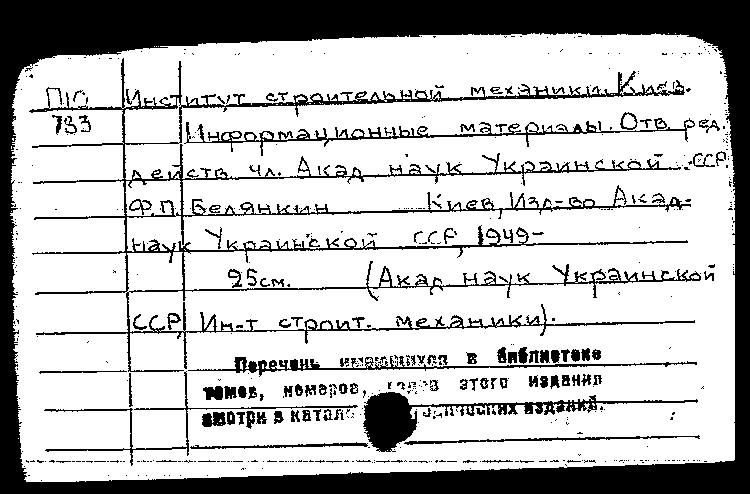 П10 Институт строительной механики. Киев.
733 Информационные материалы. Отв. ред.
действ. чл. Акад. наук Украинской ССР
Ф.П. Белянкин Киев, Изд-во Акад.
наук Украинской ССР, 1949-
25см. (Акад. наук Украинской
ССР, Ин-т строит. механики).
Перечень имеющихся в библиотеке
томов, номеров, годов этого издания
смотри в издания.